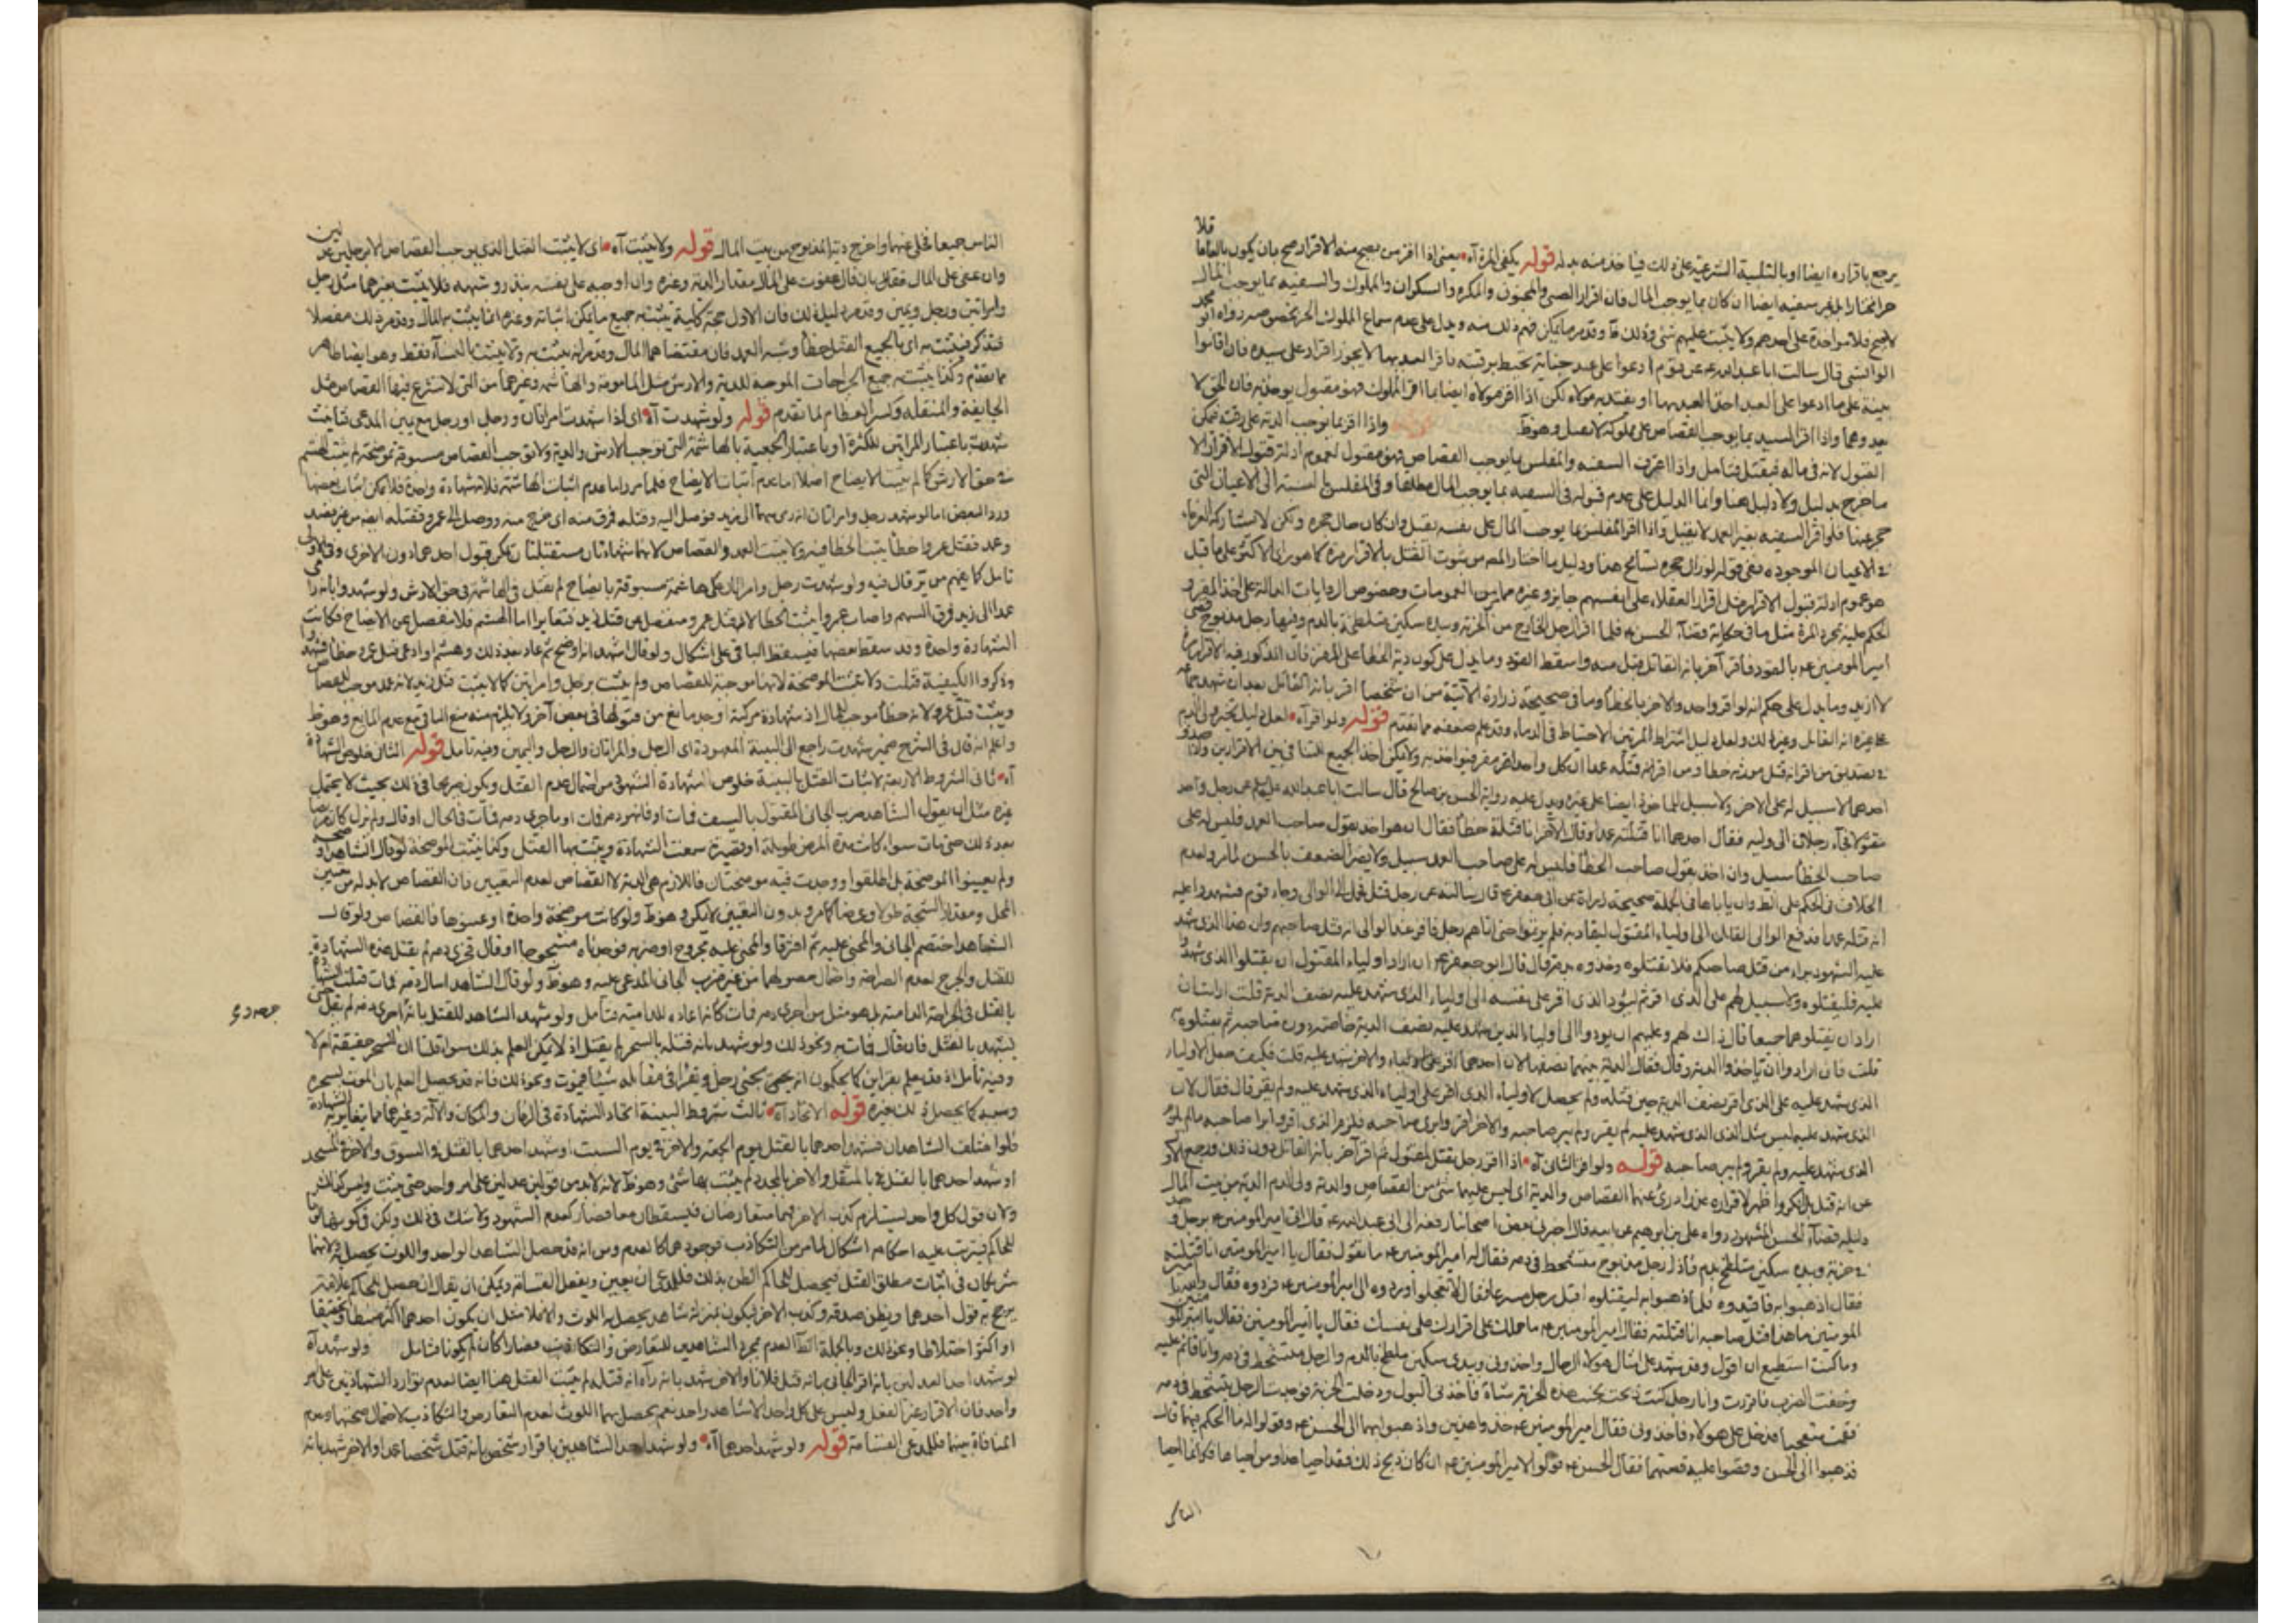 يرجع باقراره ايضا او بالتلبية الشرعية على ذلك فياخذ منه بدله قوله يكفى المرة آه يعنى اذا اقر من يصح منه الاقرار صح بان يكون بالغا عاقلا
حرا مختارا غير سفيه ايضا ان كان بما يوجب المال فان اقرار الصبى والمجنون والمكره والسكران والمملوك والسفيه بما يوجب المال
لا يصح فلا مواخذة على احدهم ولا يثبت عليهم شئ وقد مر ما يمكن فهم ذلك منه ويدل على عدم سماع المملوك الخبر رواه ابو محمد
الوابشى قال سالت ابا عبد الله ع عن قوم ادعوا على عبد جناية تحيط برقبته فاقر العبد بها لا يجوز اقرار العبد على سيده فان اقاموا
بينة على ما ادعوا على العبد اخذ العبد بها او يفتديه مولاه لكن اذا اقر مولاه ايضا بما اقر المملوك فهو مقبول يوخذ به فان الحق لا
يعدوهما واذا اقر السيد بما يوجب القصاص على مملوكه لا يقبل وهو ظ واذا اقر بما يوجب الدية على رقبته فيمكن
القبول لانه فى ماله فيقبل فتامل واذا اعترف السفيه والمفلس بما يوجب القصاص فهو مقبول لعموم ادلة قبول الاقرار الا
ما خرج بدليل ولا دليل هنا وانما الدليل على عدم قبوله فى السفيه بما يوجب المال مطلقا وفى المفلس بالنسبة الى الاعيان التى
حجر عنها فلو اقر السفيه بغير العمد لا يقبل واذا اقر المفلس بما يوجب المال على نفسه يقبل وان كان حال حجره ولكن لا يشارك الغرماء
فى الاعيان الموجودة ففى قوله لزوال حجره تسامح هنا ودليل ما اختار المص من ثبوت القتل بالاقرار مرة كما هو راى الاكثر على ما قيل
هو عموم ادلة قبول الاقرار مثل اقرار العقلاء على انفسهم جايز وغيره مما مر من العمومات وخصوص الروايات الدالة على اخذ المقر و
الحكم عليه بمجرد المرة مثل ما فى حكاية قضاء الحسن ع فلما اقر الرجل الخارج من الخربة وبيده سكين متلطخة بالدم وفيها رجل مذبوح قضى
امير المومنين ع بالقود فاقر آخر بانه القاتل فقبل منه واسقط القود وما يدل على كون دية الخطا على المقر فان المذكور فيه الاقرار مرة
لا ازيد وما يدل على حكم انه لو اقر واحد والاخر بالخطا وما فى صحيحة زرارة الآتية من ان شخصا اقر بانه القاتل بعد ان شهد جماعة
على غيره انه القاتل وغير ذلك ولعل دليل اشتراط المرتين الاحتياط فى الدماء وقد علم ضعفه مما تقدم قوله ولو اقر آه لعل دليل تخير ولى الدم
فى تصديق من اقر انه قتل مورثه خطا ومن اقر انه قتله عمدا ان كل واحد اقر فيواخذ به ولا يمكن اخذ الجميع للتنافى بين الاقرارين واذا صدق
احدهما لا سبيل له على الاخر ولا سبيل للماخوذ ايضا على غيره ويدل عليه رواية الحسن بن صالح قال سالت ابا عبد الله عليه السلم عن رجل وجد
مقتولا فجاء رجلان الى وليه فقال احدهما انا قتلته عمدا وقال الآخر انا قتلته خطا فقال ان هو اخذ بقول صاحب العمد فليس له على
صاحب الخطا سبيل وان اخذ بقول صاحب الخطا فليس له على صاحب العمد سبيل ولا يضر الضعف بالحسن لما مر ولعدم
الخلاف فى الحكم على الظ وان ياباها فى الجملة صحيحة زرارة عن ابى جعفر ع قال سالته عن رجل قتل فحمل الى الوالى وجاء قوم فشهدوا عليه
انه قتله عمدا فدفع الوالى القاتل الى اولياء المقتول ليقاد به فلم يرتفعوا حتى اتاهم رجل فاقر عند الوالى انه قتل صاحبهم وان هذا الذى شهد
عليه الشهود براء من قتل صاحبكم فلا تقتلوه وخذوه بدمه قال فقال ابو جعفر ع ان اراد اولياء المقتول ان يقتلوا الذى شهدوا
عليه فليقتلوه ولا سبيل لهم على الذى اقر ثم ليؤد الذى اقر على نفسه الى اولياء الذى شهد عليه نصف الدية قلت ارايت ان
ارادوا ان يقتلوهما جميعا قال ذاك لهم وعليهم ان يودوا الى اولياء الذين شهد عليه نصف الدية خاصة دون صاحبه ثم يقتلوه
قلت فان ارادوا ان ياخذوا الدية قال فقال الدية بينهما نصفان لان احدهما اقر والاخر شهد عليه قلت فكيف جعل لاولياء
الذى شهد عليه على الذى اقر نصف الدية حين قتله ولم يجعل لاولياء الذى اقر على اولياء الذى شهد عليه ولم يقر قال فقال لان
الذى شهد عليه ليس مثل الذى اقر الذى شهد عليه لم يقر ولم يبر صاحبه والاخر اقر وابرى صاحبه فلزم الذى اقر وابرا صاحبه ما لم يلزم
الذى شهد عليه ولم يقر ولم يبر صاحبه قوله ولو اقر الثانى آه اذا اقر رجل بقتل المقتول ثم اقر آخر بانه القاتل دون ذلك ورجع الاول
عن انه قتل بل انكر واظهر لاقراره عذرا درئ عنهما القصاص والدية اى ليس عليهما شئ من القصاص والدية ولولى الدم الدية من بيت المال
دليله قضاء الحسن المشهور رواه على بن ابراهيم عن ابيه قال اخبرنى بعض اصحابنا رفعه الى ابى عبد الله ع قال اتى امير المومنين ع برجل وجد
فى خربة وبيده سكين متلطخ بدم واذا رجل مذبوح متشحط فى دمه فقال له امير المومنين ع ما تقول فقال يا امير المومنين انا قتلته
فقال اذهبوا به فاقيدوه فلما ذهبوا به ليقتلوه اقبل رجل مسرعا فقال لا تعجلوا وردوه الى امير المومنين ع فردوه فقال والله يا امير
المومنين ما هذا قتل صاحبه انا قتلته فقال امير المومنين ع ما حملك على اقرارك على نفسك فقال يا امير المومنين
وما كنت استطيع ان اقول وقد شهد على امثال هولاء الرجال واخذونى وبيدى سكين ملطخ بالدم والرجل متشحط فى دمه وانا قائم عليه
وخفت الضرب فاقررت وانا رجل كنت ذبحت بجنب هذه الخربة شاة فاخذنى البول ودخلت الخربة فوجدت الرجل يتشحط فى دمه
فقمت متعجبا فدخل على هولاء فاخذونى فقال امير المومنين ع خذوا هذين واذهبوا بهما الى الحسن ع وقولوا له ما الحكم فيهما قال
فذهبوا الى الحسن وقصوا عليه قصتهما فقال الحسن ع قولوا لامير المومنين ع ان كان ذبح ذلك فقد احيا هذا ومن احياها فكانما احيا
الناس
الناس جميعا فخلى عنهما واخرج دية المذبوح من بيت المال قوله ولا يثبت آه اى لا يثبت القتل الذى يوجب القصاص الا برجلين عدلين
وان عفى على المال فقال بان قال عفوت على المال مقدار الدية وغيره وان اوجبه على نفسه بنذر وشبهه فلا يثبت بغيرهما مثل رجل
وامراتين ورجل ويمين وقد مر دليل ذلك فان الاول حجة كلية يثبت به جميع ما يمكن اثباته وغيره انما يثبت به المال وقد مر ذلك مفصلا
فتذكر فيثبت به اى بالجميع القتل خطا وشبه العمد فان مقتضاهما المال وقد مر انه يثبت به ولا يثبت بالنساء فقط وهو ايضا ظاهر
مما تقدم وكذا يثبت به جميع الجراحات الموجبة للدية والارش مثل المامومة والهاشمة وغيرهما من التى لا تشرع فيها القصاص مثل
الجايفة والمنقلة وكسر العظام لما تقدم قوله ولو شهدت آه اى اذا شهدت امراتان ورجل او رجل مع يمين المدعى
باعتبار الكثرة او باعتبار الجمعية بالهاشمة التى توجب الارش والدية ولا توجب القصاص مسبوقة بموضحة لم يثبت الهشم
فى حق الارش كما لم يثبت الايضاح اصلا اما عدم اثبات الايضاح فلما مر واما عدم اثبات الهاشمة فلانه شهادة واحدة فلا يمكن اثبات بعضها
ورد البعض اما لو شهد رجل وامراتان انه رمى سهما الى زيد فوصل اليه وقتله فمرق منه اى خرج منه ووصل الى عمرو فقتله ايضا من غير قصد
وعمد فقتل عمرو خطا يثبت الخطا فيه ولا يثبت العمد والقصاص لانهما شهادتان مستقلتان يمكن قبول احدهما دون الاخرى وفى الاولى
تامل كما يفهم من قال فيه ولو شهدت رجل وامراتان على هاشمة مسبوقة بايضاح لم يقبل فى الهاشمة فى حق الارش ولو شهدوا بانه رمى
عمدا الى زيد فمرق السهم واصاب عمروا يثبت الخطا لان قتل عمرو منفصل من قتل زيد فتغايرا اما الهشم فلا ينفصل عن الايضاح فكانت
الشهادة واحدة وقد سقط بعضها فيسقط الباقى على اشكال ولو قال اشهد انه اوضح ثم عاد بعد ذلك وهشم او ادعى قتل عمرو خطا فشهدوا
وذكروا الكيفية قبلت ولا تثبت الموضحة لانها موجبة للقصاص ولم يثبت برجل وامراتين كما لا يثبت قتل زيد لانه عمد موجب للقصاص
ويثبت قتل عمرو لانه خطا موجب للمال اذ شهادة مركبة اوجد مانع من قبولها فى بعض آخر ولا يلزم منه منع الباقى مع عدم المانع وهو ظ
واعلم انه قال فى الشرح ضمير شهدت راجع الى البينة المعهودة اى الرجل والمراتان والرجل واليمين وفيه تامل قوله الثانى خلوص الشهادة
آه ثانى الشروط الاربعة لاثبات القتل بالبينة خلوص الشهادة الشهود من احتمال عدم القتل ويكون صريحا فى ذلك بحيث لا يحتمل
غيره مثل ان يقول الشاهد ضرب الجانى المقتول بالسيف فمات او فانهر دمه فمات او ما جرى دمه فمات فى الحال او قال ولم يزل كان مريضا
بعد ذلك حتى مات سواء كانت مدة المرض طويلة او قصيرة سمعت الشهادة ويثبت بها القتل وكذا يثبت الموضحة لو قال الشاهد اوضحه
ولم يعينوا الموضحة بل اطلقوا ووجدت فيه موضحتان فاللازم هى الدية لا القصاص لعدم التعيين فان القصاص لا بد له من تعيين
المحل ومقدار الشجة طولا وعرضا كما مر وبدون التعيين لا يمكن وهو ظ ولو كانت موضحة واحدة او عينوها فالقصاص ولو قال
الشاهد اختصم الجانى والمجنى عليه ثم افترقا والمجنى عليه مجروح او ضربه فوجدناه مشجوجا او قال فجرى دمه لم يقبل هذه الشهادة
للقتل والجرح لعدم الصراحة واحتمال حصولهما من غير ضرب الجانى المدعى عليه وهو ظ ولو قال الشاهد اسال دمه فمات قبلت الشهادة
بالقتل فى الجراحة الدامية بل هو مثل من اجرى دمه فمات كانه اعاده للدامية فتامل ولو شهد الشاهد للقتل بانه اجرى دمه لم يقبل حتى
يشهد بالقتل فان قال فمات به ونحو ذلك ولو شهد بانه قتله بالسحر لم يقبل اذ لا يمكن العلم بذلك سواء قلنا ان للسحر حقيقة ام لا
وفيه تامل اذ قد يعلم بقراين كما يحكون انه يجئ رجل ويقرا فى مقابله شيئا فيموت ونحو ذلك فانه قد يحصل العلم بان الموت بسحره
وسببه كما يحصل ذلك بغيره قوله الاتحاد آه ثالث شروط البينة اتحاد الشهادة فى الزمان والمكان والآلة وغيرها مما يتغاير به الشهادة
فلو اختلف الشاهدان فشهد احدهما بالقتل يوم الجمعة والاخر فى يوم السبت او شهد احدهما بالقتل فى السوق والاخر فى المسجد
او شهد احدهما بالقتل بالمثقل والاخر بالمحدد لم يثبت بها شئ وهو ظ لانه لا بد من قولين عدلين على امر واحد حتى يثبت وليس كذلك
ولان قول كل واحد يستلزم كذب الاخر فهما متعارضان فيسقطان معا فصار كعدم الشهود ولا شك فى ذلك ولكن فى كونهما لوثا
للحاكم فيترتب عليه احكامه اشكال لما مر من التكاذب فوجودهما كالعدم ومن انه قد حصل الشاهد الواحد واللوث يحصل به ولانهما
شريكان فى اثبات مطلق القتل فيحصل للحاكم الظن بذلك فللمدعى ان يعين ويفعل القسامة ويمكن ان يقال ان حصل للحاكم علامة
يرجح به قول احدهما ويظن صدقه وكذب الاخر فيكون بمنزلة شاهد يحصل به اللوث والا فلا مثل ان يكون احدهما اكثر ضبطا وتحقيقا
او اكثر اختلاطا ونحو ذلك وبالجملة الظ العدم بمجرد الشاهدين للتعارض والتكاذب فصارا كان لم يكونا فتامل ولو شهد آه
لو شهد احد العدلين بانه اقر الجانى بانه قتل فلانا والاخر شهد بانه رآه انه قتله لم يثبت القتل هنا ايضا لعدم توارد الشهادتين على امر
واحد فان الاقرار غير الفعل وليس على كل واحد الا شاهد واحد نعم يحصل بهما اللوث لعدم التعارض والتكاذب لاحتمال صحتهما وعدم
المنافاة بينهما فللمدعى القسامة قوله ولو شهد احدهما آه ولو شهد احد الشاهدين باقرار شخص بانه قتل شخصا عمدا والاخر شهد بانه